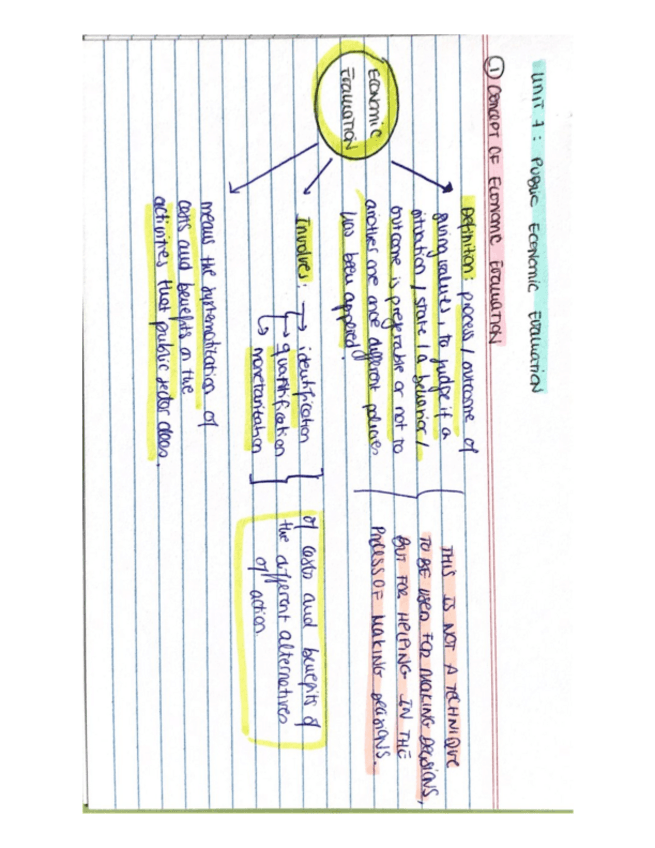 UNIT 7: PUBLIC ECONOMIC EVALUATION
① CONCEPT OF ECONOMIC EVALUATION
ECONOMIC
EVALUATION
Definition: process / outcome of
giving values, to judge if a
situation / state / a behavior /
outcome is preferable or not to
another one once different policies
has been applied.
THIS IS NOT A TECHNIQUE
TO BE USED FOR MAKING DECISIONS,
BUT FOR HELPING IN THE
PROCESS OF MAKING DECISIONS.
Involves: → identification
→ quantification
→ monetarization
of costs and benefits of
the different alternatives
of action
means the systematization of
costs and benefits on the
activities that public sector does.